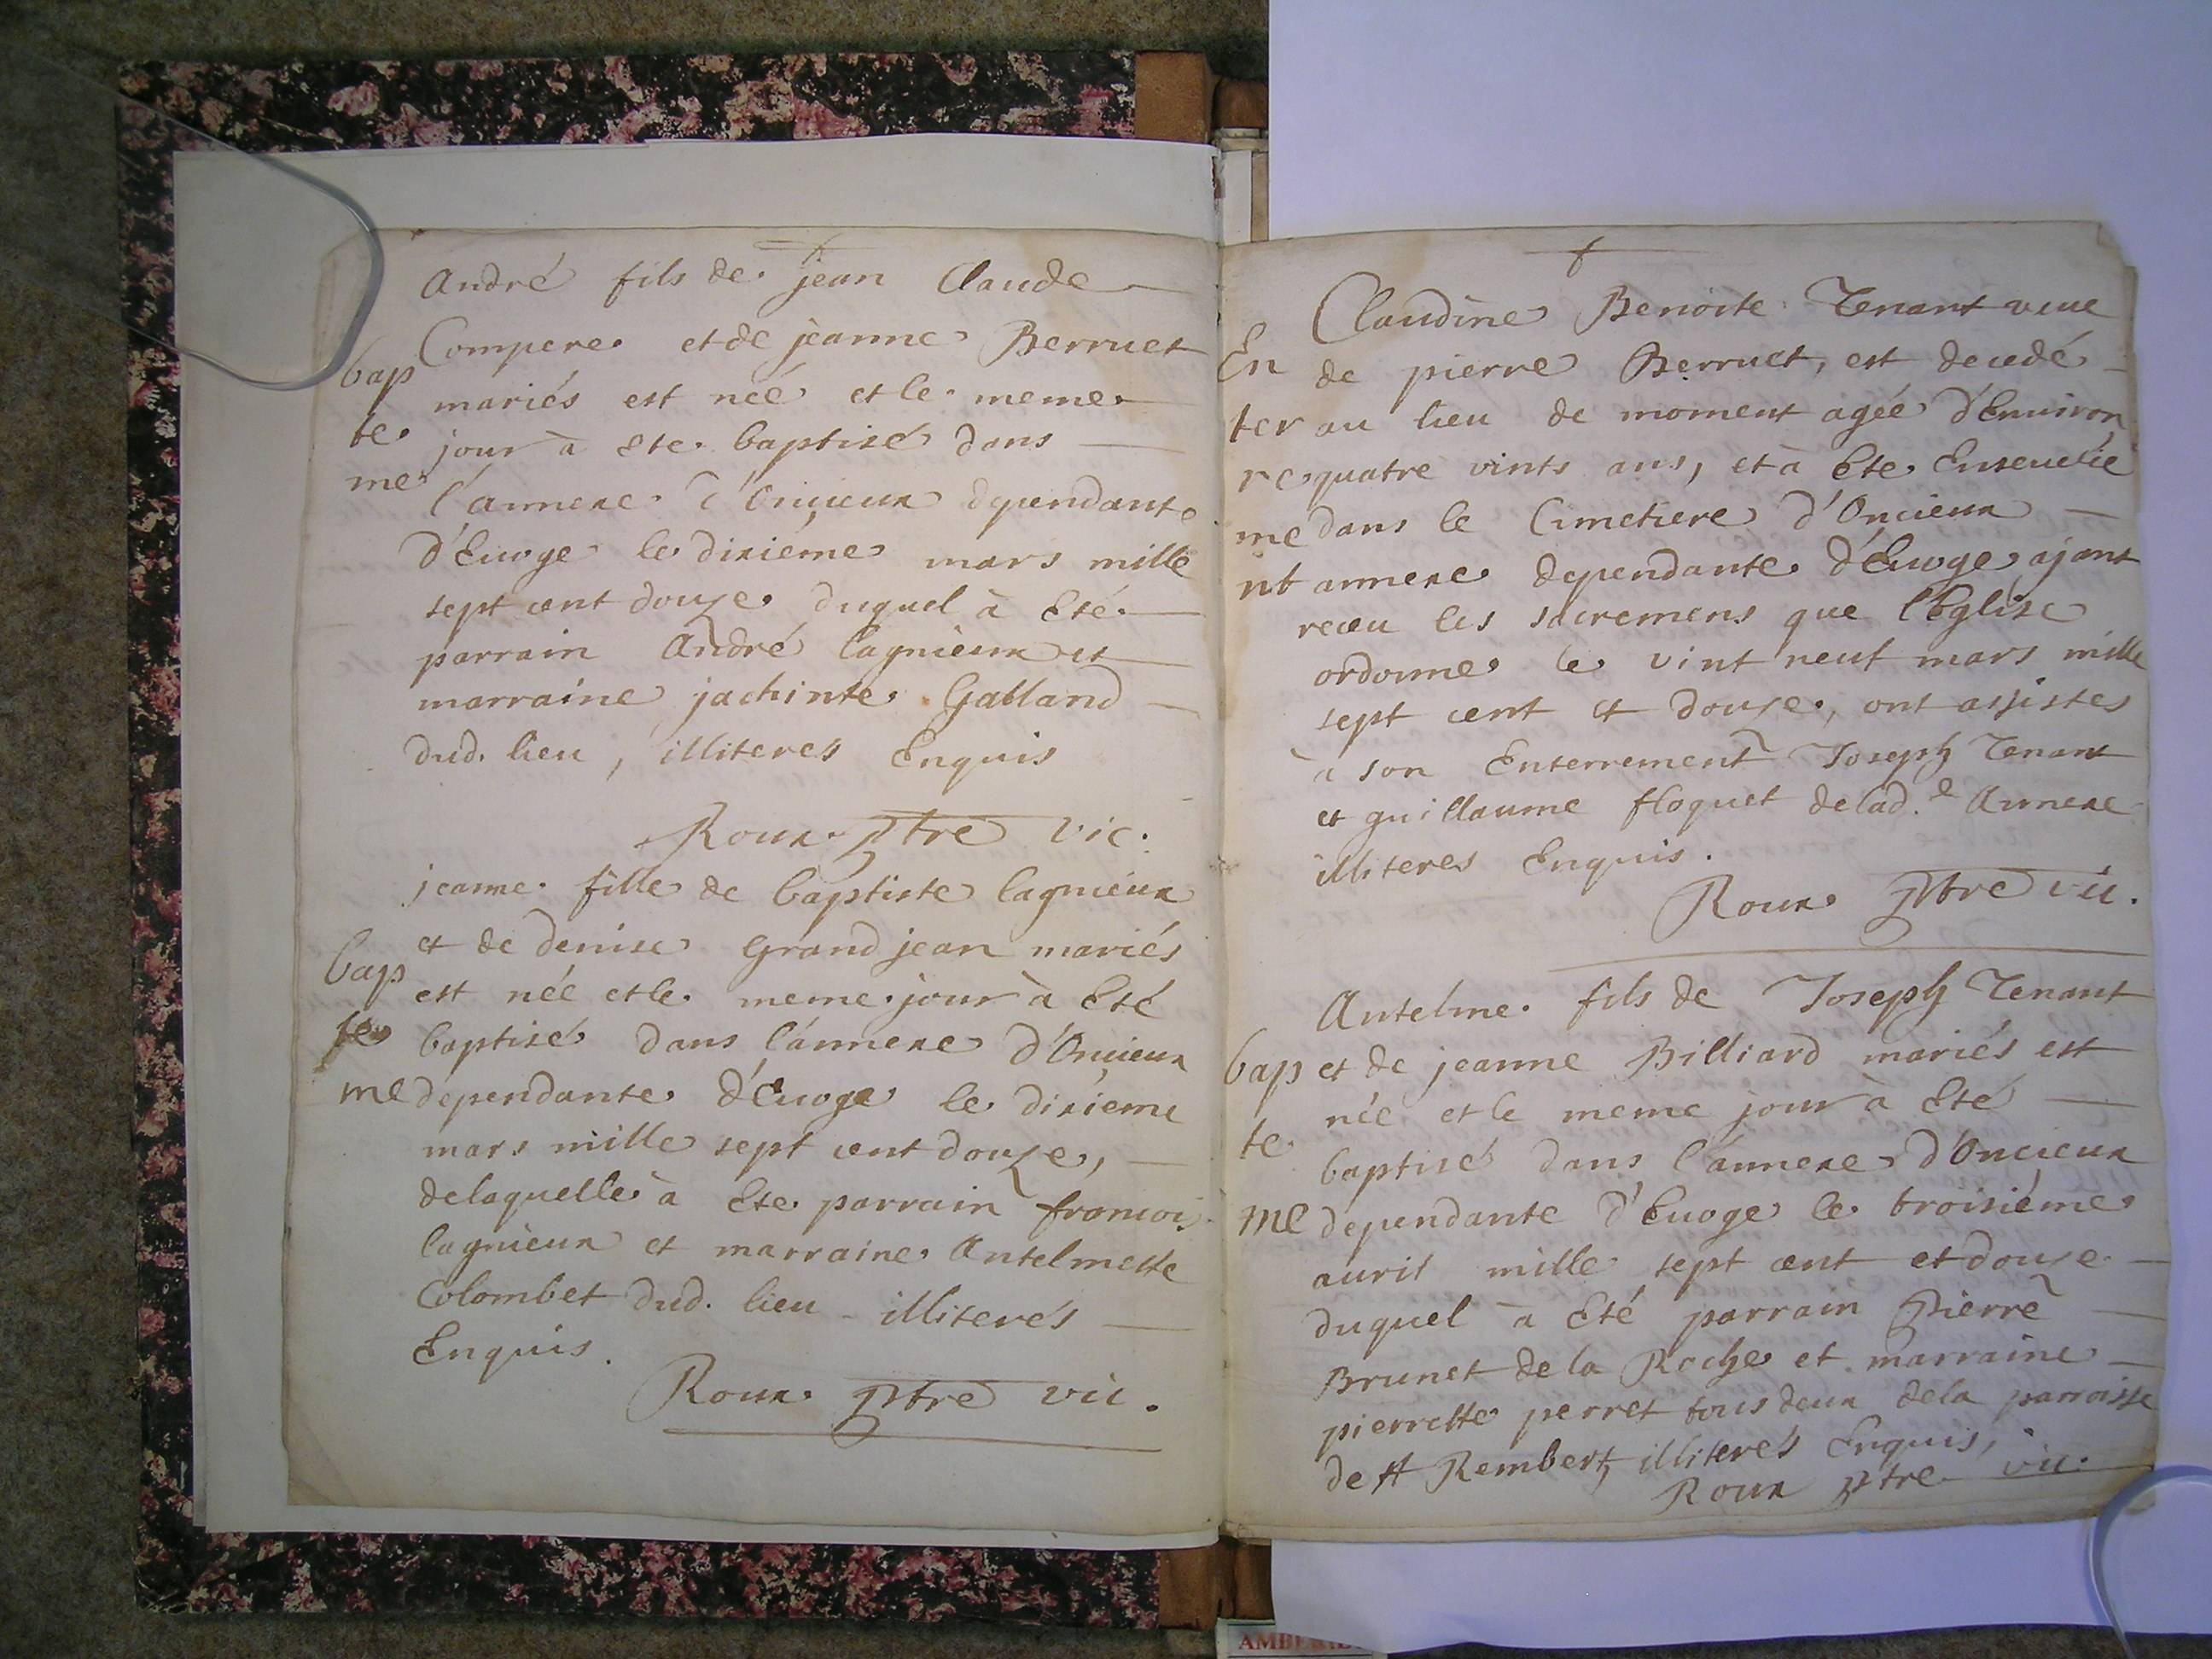 andré fils de jean Claude
Compere et de jeanne Berruet
bap
mariés est neé et le meme
te
jour à ete baptisé dans
me
l'annexe d'Oncieux dependante
d'Euoge le dixiéme mars mille
sept cent douze duquel à Eté
parrain André lagnieux et
marraine jachinte Galland
dud. lieu, illiteres Enquis
Roux ptre vic.
jeanne fille de baptiste lagnieux
et de denise Grand jean mariés
bap
est née et le meme jour à Eté
te
baptisé dans l'annexe d'Oncieux
me dependante d'Euoge le dixiéme
mars mille sept cent douze,
de laquelle à Ete parrain francoi
lagnieux et marraine Antelmette
Colombet dud. lieu illiterés
Enquis.
Roux ptre vic.
Claudine Benoite Tenant veue
En de pierre Berruet, est decedé
ter au lieu de moment agée d'Enuiron
re quatre vints ans, et à Ete Enseuelie
me dans le Cimetiere d'Oncieux
nt annexe dependante d'Euoge ajant
receu les sacremens que l'Eglise
ordonne le vint neuf mars mille
sept cent et douze, ont assistes
à son Enterrement Joseph Tenant
et guillaume floquet de lad.e Annexe
illiteres Enquis.
Roux ptre vic.
Antelme fils de Joseph Tenant
bap et de jeanne Billiard mariés est
née et le meme jour à Eté
te
baptisé dans l'annexe d'Oncieux
me dependante d'Euoge le troisiéme
auril mille sept cent et douze
duquel à Eté parrain Pierre
Brunet de la Roche et marraine
pierrette perret tous deux de la parroisse
de st Rembert, illiterés Enquis,
Roux ptre vic.